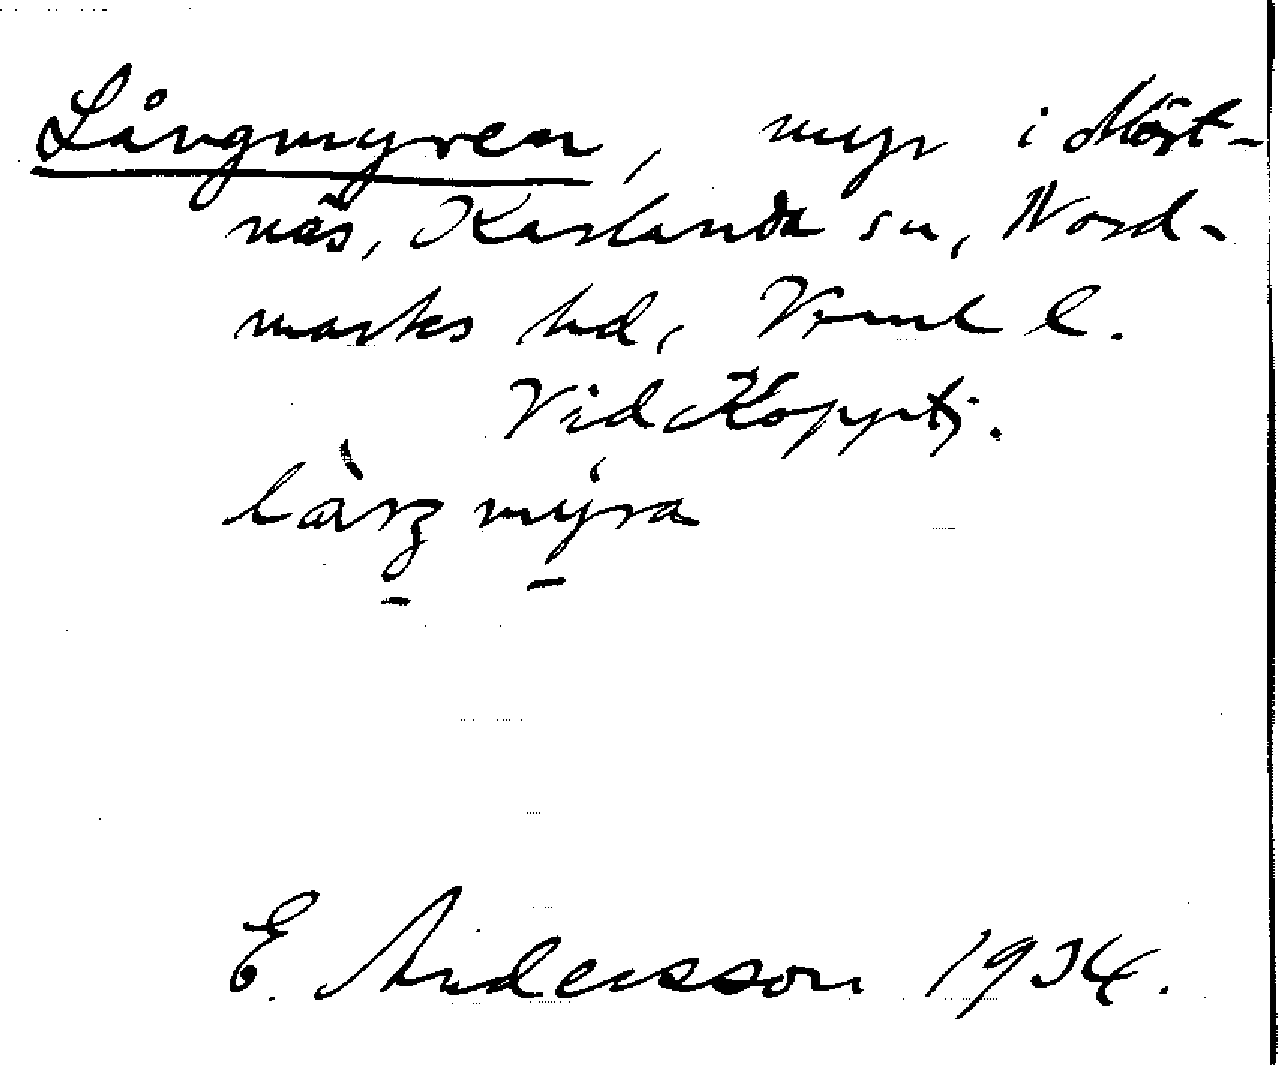 Långmyren, myr i Möst-
näs, Karlanda sn, Nord-
marks hd, Vrml l.
Vid Kopptj.
làŋ mýra
E. Andersson 1934.